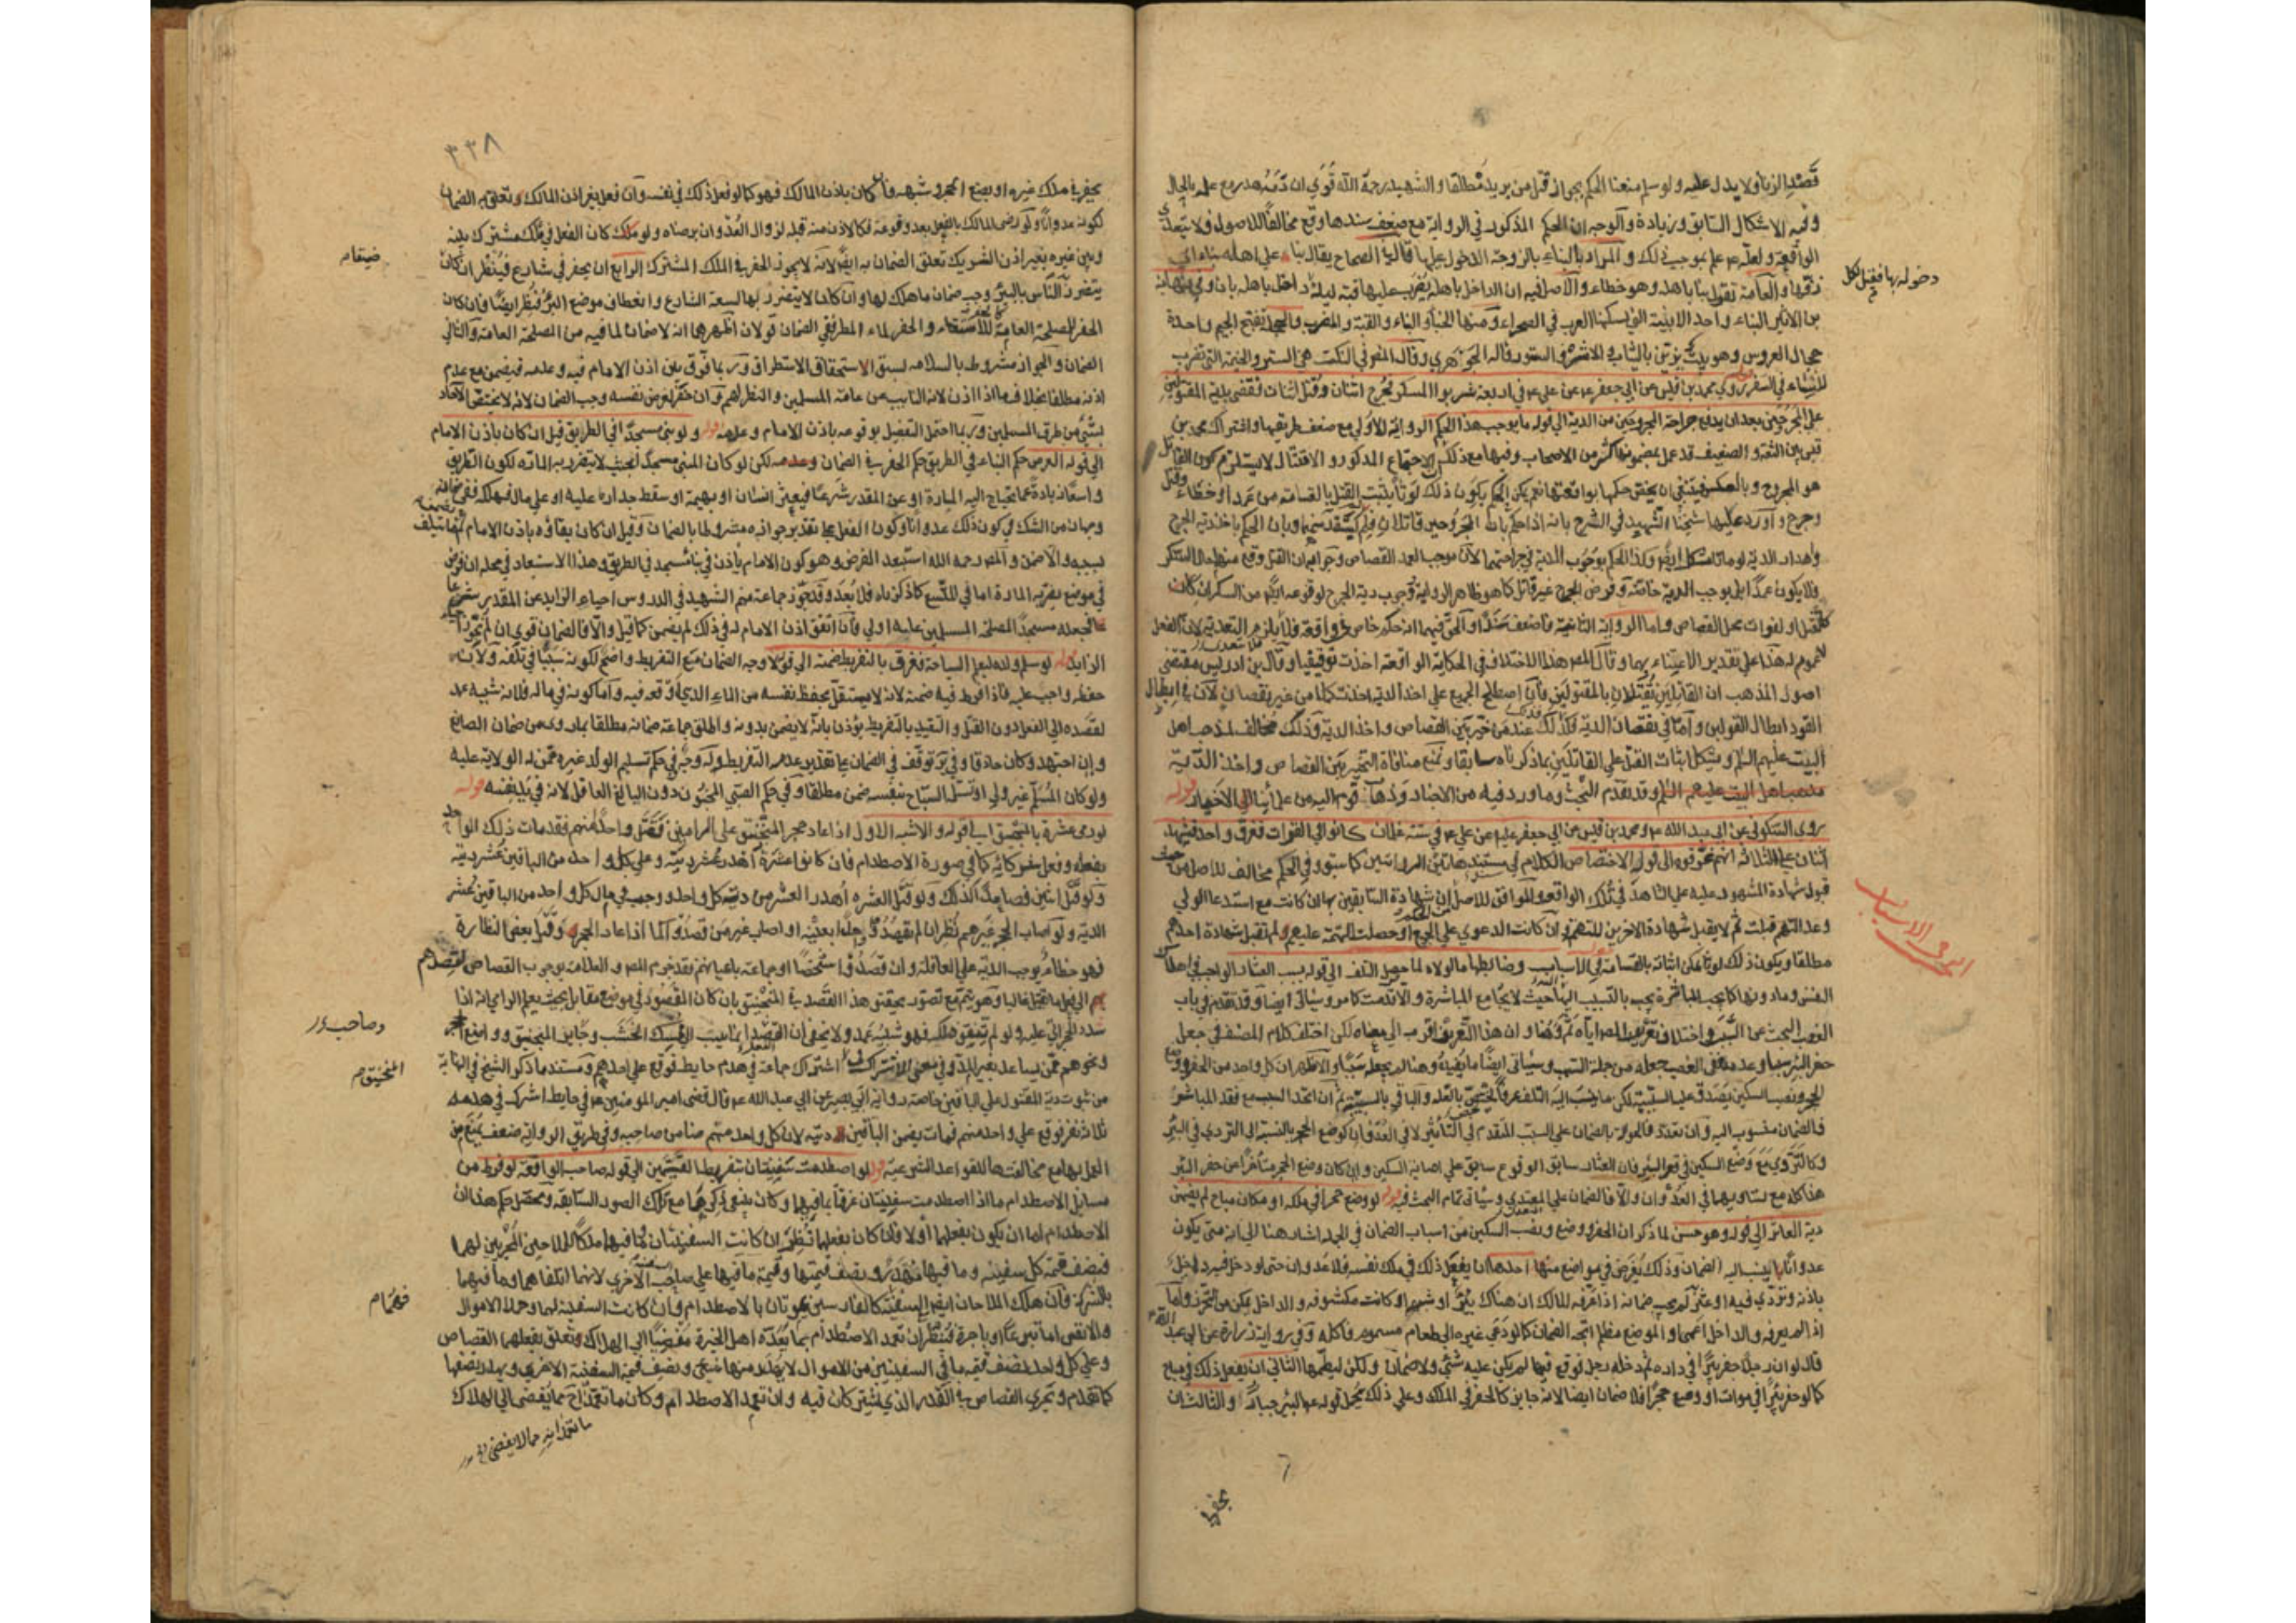 قصد الزنا ولا يدل عليه ولو سلم منعنا الحكم بجواز قتل من يريد مطلقا والشهيد رحمه الله قوي ان دمه هدر مع علمه بالحال
وفيه الاشكال السابق وزيادة والوجه ان الحكم المذكور في الرواية مع ضعف سندها وقع مخالفا للاصول فلا يتعدى
الواقعة ولعله ع علم بموجب ذلك والمراد بالبناء بالزوجة الدخول عليها قال في الصحاح يقال بنا على اهله بناء اي
زفها والعامة تقول بنا باهله وهو خطاء والاصل فيه ان الداخل باهله يضرب عليها قبة ليلة
دخوله بها فقيل لكل
داخل باهله بان وفي نهاية
بن الاثير البناء واحد الابنية التي يسكنها العرب في الصحراء ومنها الخباء والبناء والقبة والمضرب والحجلة بفتح الجيم واحدة
حجال العروس وهو بيت يزين بالثياب والاسرة والستور قاله الجوهري وقال المص في النكت هي الستر والخيمة التي تضرب
للنساء في السفر قوله روي محمد بن قيس عن ابي جعفر ع عن علي ع في اربعة شربوا المسكر فجرح اثنان وقتل اثنان فقضى بدية المقتولين
على المجروحين بعد ان يدفع جراحة المجروحين من الدية الى قوله ما يوجب هذا الحكم الرواية الاولى مع ضعف طريقها واشتراك محمد بن
قيس بين الثقة والضعيف قد عمل بمضمونها كثير من الاصحاب وفيها مع ذلك ان الاجتماع المذكور والاقتتال لا يستلزم كون القاتل
هو المجروح وبالعكس فينبغي ان يختص حكمها بواقعتها نعم يمكن الحكم بكون ذلك لوثا يثبت القتل بالقسامة من عمد او خطاء وقتل
وجرح واورد عليها شيخنا الشهيد في الشرح بانه اذا حكم بان المجروحين قاتلان فلم لا يستقد منهما وبان الحكم باخذ دية الجرح
واهدار الدية لو ماتا مشكل ايضا وكذا الحكم بوجوب الدية في جراحتهما لان موجب العمد القصاص وجوابه ان القتل وقع منهما حال السكر
فلا يكون عمدا بل يوجب الدية خاصة وفرض الجرح غير قاتل كما هو ظاهر الرواية ووجوب دية الجرح لوقوعه ايضا من السكران كان
كالقتل او لفوات محل القصاص واما الرواية الثانية فاضعف سندا والحق فيها انه حكم خاص في واقعة فلا يلزم التعدية لان الفعل
لا عموم له هذا على تقدير الاعتناء بها وقال المص هذا الاختلاف في الحكاية الواقعة احدثت توقيفا وقال بن ادريس مقتضى
اصول المذهب ان القاتلين يقتلان بالمقتولين فان اصطلح الجميع على اخذ الدية اخذت كملا من غير نقصان لان في ابطال
القود ابطال القولين واما في نقصان الدية فذلك عند من خير بين القصاص واخذ الدية وذلك مخالف لمذهب اهل
البيت عليهم السلم ويشكل اثبات القتل على القاتلين بما ذكرناه سابقا ونمنع منافاة التخيير بين القصاص واخذ الدية
مذهب اهل البيت عليهم السلم وقد تقدم البحث وما ورد فيه من الاخبار وذهاب قوم اليه من علمائنا الاخيار قوله
روى السكوني عن ابي عبد الله ع ومحمد بن قيس عن ابي جعفر ع عن علي ع في ستة غلمان كانوا في الفرات فغرق واحد فشهد
اثنان على الثلاثة انهم غرقوه الى قوله الاختصاص الكلام في مستند هاتين الروايتين كما سبق والحكم مخالف للاصل من حيث
قبول شهادة المشهود عليه على الشاهد في تلك الواقعة والموافق للاصل ان شهادة السابقين بها ان كانت مع استدعا الولي
وعدالتهم قبلت ثم لا يقبل شهادة الاخرين للتهمة وان كانت الدعوى على الجميع او حصلت التهمة عليهم لم تقبل شهادة احدهم
مطلقا ويكون ذلك لوثا يمكن اثباته بالقسامة في الاسباب وضابطها ما لولاه لما حصل التلف الى قوله بسبب العثار الواجب في اهلاك
النفس وما دونها كما يجب المباشرة يجب بالتسبب اليها حيث لا يجامع المباشرة والا قدمت كما مر وسياتي ايضا وقد تقدم في باب
الغصب البحث عن السبب واختلاف تعريف المص اياه ثم وهنا وان هذا التعريف اقرب الى معناه لكن اختلف كلام المصنف في جعل
حفر البئر سببا وعدمه ففي الغصب جعله من جملة السبب وسياتي ايضا ما يفيده وهنا لم يجعله سببا والاظهر ان كل واحد من الحفر ووضع
الحجر ونصب السكين يصدق عليه السببية
فالضمان منسوب اليه وان تعدد فالحوالة بالضمان على السبب المتقدم في التأثير لا في العدوان كوضع الحجر بالنسبة الى التردي في البئر
وكالتردي مع وضع السكين في قعر البئر فان العثار سابق الوقوع سابق على اصابة السكين وان كان وضع الحجر متاخرا عن حفر البئر
هذا كله مع تساويهما في العدوان والا فالضمان على المعتدي وسياتي تمام البحث فيه قوله لو وضع حجرا في ملكه او مكان مباح لم يضمن
دية العاثر الى قوله وهو حسن لما ذكر ان الحفر ووضع ونصب السكين من اسباب الضمان في الجملة اشار هنا الى انه متى يكون
عدوانا لينسب اليه الضمان وذلك يفرض في مواضع منها احدها ان يفعل ذلك في ملك نفسه فلا عدوان حتى لو دخل فيه داخل
باذنه وتردي فيه او عثر لم يجب ضمانه اذا عرفه المالك ان هناك بئرا او شبهه او كانت مكشوفة والداخل يمكن من التحرز واما
اذا لم يعرفه والداخل اعمى او الموضع مظلم اتجه الضمان كما لو دعي غيره الى طعام مسموم فاكله وفي رواية زرارة عن ابي عبد الله ع
قال لو ان رجلا حفر بئرا في داره ثم دخله رجل فوقع فيها لم يكن عليه شئ ولا ضمان ولكن ليغطها الثاني ان يفعل ذلك في مباح
كما لو حفر بئرا في موات او وضع حجرا فلا ضمان ايضا لانه جايز كالحفر في الملك وعلى ذلك يحمل قوله ع البئر جبار والثالث ان
النوع في الاسباب
٣٣٨
يحفر في ملك غيره او يضع الحجر وشبهه فان كان باذن المالك فهو كما لو فعل ذلك في نفسه وان فعل بغير اذن المالك وتعلق به الضمان
لكونه عدوانا ولو رضي المالك بالفعل بعد وقوعه فكالاذن منه قبله لزوال العدوان برضاه ولو كان الفعل في ملك مشترك بينه
وبين غيره بغير اذن الشريك تعلق الضمان به ايضا لانه لا يجوز الحفر في الملك المشترك الرابع ان يحفر في شارع فينظر ان كان
ضيقا م
يتضرر الناس بالبئر وجب ضمان ما هلك لها وان كان لا يتضرر بها لسعة الشارع وانعطاف موضع البئر فينظر ايضا فان كان
الحفر لمصلحة العامة كالحفر للاستقاء والحفر لماء المطر ففي الضمان قولان اظهرهما انه لا ضمان لما فيه من المصلحة العامة والثاني
الضمان والجواز مشروط بالسلامة لسبق الاستحقاق الاستطراق وربما فرق بين اذن الامام فيه وعدمه فيضمن مع عدم
اذنه مطلقا بخلاف ما اذا اذن لانه النايب عن عامة المسلمين والنظر لهم وان حفر لغرض نفسه وجب الضمان لانه لا يختص الاحاد
بشئ من طرق المسلمين وربما احتمل التفصيل بوقوعه باذن الامام وعدمه قوله ولو بنى مسجدا في الطريق قيل ان كان باذن الامام
الى قوله الغرض حكم البناء في الطريق حكم الحفر في الضمان وعدمه لكن لو كان المبنى مسجدا بحيث لا يتضرر به المارة لكون الطريق
واسعا زيادة عما يحتاج اليه المارة او عن المقدر شرعا فيعثر انسان او بهيمة او سقط جداره عليه او على مال فهلك ففي ضمانه
وجهان من الشك في كون ذلك عدوانا وكون الفعل على تقدير جوازه مشروطا بالضمان وقيل ان كان بقاؤه باذن الامام لم يضمن ما يتلف
بسببه والا ضمن والمص رحمه الله استبعد الفرض وهو كون الامام ياذن في بناء مسجد في الطريق وهذا الاستبعاد في محله ان فرض
في موضع يضر به المارة اما في المتسع كما ذكرناه فلا بعد وقد جوز جماعة منهم الشهيد في الدروس احياء الزايد عن المقدر شرعا
فجعله مسجدا لمصلحة المسلمين عامة اولى فان اتفق اذن الامام له في ذلك لم يضمن كما قيل والا فالضمان قوي ان لم نجوز احياء
الزايد قوله لو سلم ولده لمعلم السباحة فغرق بالتفريط ضمنه الى قوله لا وجه الضمان مع التفريط واضح لكونه سببا في تلفه ولان
حفظه واجب عليه فاذا فرط فيه ضمنه لانه لا يستقل بحفظ نفسه من الماء الذي اوقعه فيه واما كونه في ماله فلانه شبيه عمد
لقصده الى الفعل دون القتل والتقييد بالتفريط يؤذن بانه لا يضمن بدونه واطلق جماعة ضمانه مطلقا بما روى من ضمان الصانع
وان اجتهد وكان حاذقا وفي ير توقف في الضمان على تقدير عدم التفريط وله وجه في حكم تسليم الولد غيره ممن له الولاية عليه
ولو كان المسلم غير ولي او تسلم السباح بنفسه ضمن مطلقا وفي حكم الصبي المجنون دون البالغ العاقل لانه في يد نفسه قوله
لو رمى عشرة بالمنجنيق الى قوله والاشبه الاول اذا عاد حجر المنجنيق على الرامين فقتل واحدا منهم فقد مات ذلك الواحد
بفعله وفعل شركائه كما في صورة الاصطدام فان كانوا عشرة اهدر عشر ديته وعلى كل واحد من الباقين عشر دية
ولو قتل اثنين فصاعدا فكذلك ولو قتل العشرة اهدر العشر من دية كل واحد ووجب في مال كل واحد من الباقين عشر
الدية ولو اصاب الحجر غيرهم نظر ان لم يقصدوا رجلا بعينه او اصاب غير من قصدوا كما اذا عاد الحجر وقتل بعض النظارة
فهو خطأ يوجب الدية على العاقلة وان قصدوا شخصا او جماعة باعيانهم فقد جزم المص والعلامة بوجوب القصاص لقصدهم
الى فعل ما يقتل غالبا وهو يتم مع تصور تحقق هذا القصد في المنجنيق بان كان المقصود في موضع مقابل بحيث يعلم الرامي انه اذا
سدد الحجر اتى عليه ولو لم يتفق ذلك فهو شبيه عمد ولا يخفى ان القصد انما يناسب الى ممسك الخشب وجاذب المنجنيق وواضع الحجر
وصاحب در
ونحوهم ممن يساعد بغير المد وفي معنى الاشتراك اشتراك جماعة في هدم حايط فوقع على احدهم ومستند ما ذكر الشيخ في النهاية
المنجنيق م
من ثبوت دية المقتول على الباقين خاصة رواية ابي بصير عن ابي عبد الله ع قال قضى امير المؤمنين ع في حايط اشترك في هدمه
ثلاثة نفر فوقع على واحد منهم فمات يضمن الباقين ديته لان كل واحد منهم ضامن صاحبه وفي طريق الرواية ضعف يمنع من
العمل بها مع مخالفتها للقواعد الشرعية قوله لو اصطدمت سفينتان بتفريط القيمين الى قوله صاحب الواقعة لو فرط من
مسايل الاصطدام ما اذا اصطدمت سفينتان غرقا بما فيهما وكان ينبغي ذكرها مع تلك الصور السابقة ومحصل حكم هذا ان
الاصطدام اما ان يكون بفعلهما او لا فان كان بفعلهما نظر ان كانت السفينتان وما فيهما ملكا للملاحين المجريين لهما
فنصف قيمة كل سفينة وما فيها مهدر ونصف قيمتها وقيمة ما فيها على صاحب الاخرى لانهما اتلفاهما وما فيهما
بالشركة فان هلك الملاحان ايضا فهما كالفارسين يموتان بالاصطدام وان كانت السفينة لهما وحملا الاموال
فهما م
والانفس اما تبرعا او باجرة فينظر ان تعمد الاصطدام بما يعده اهل الخبرة مفضيا الى الهلاك وتعلق بفعلهما القصاص
وعلى كل واحد نصف قيمة ما في السفينتين من الاموال لا يهدر منها شئ ونصف قيمة السفينة الاخرى ويهدر نصفها
كما تقدم ويجري القصاص في القدر الذي يشتركان فيه وان تعمد الاصطدام وكان ما تعمدا به مما يفضي الى الهلاك
ما تعمدا به مما لا يفضي
يحفر في